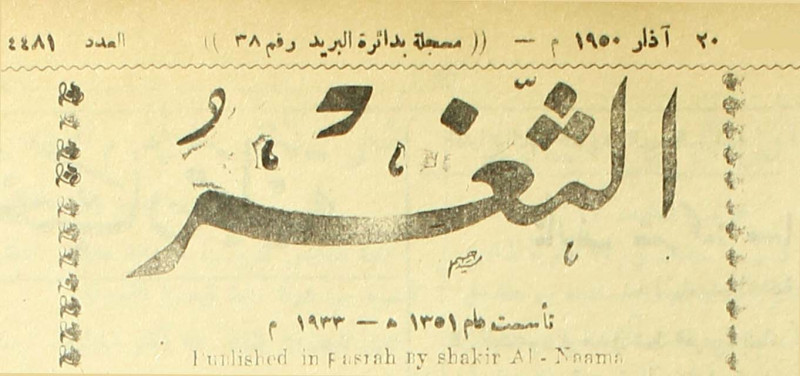 ٢٠ آذار ١٩٥٠ م — (( مسجلة بدائرة البريد رقم ٣٨ )) العدد ٤٤٨١
الثَّغْرُ
تأسست عام ١٣٥١ ه — ١٩٣٣ م
Published in Basrah By shakir Al - Naama